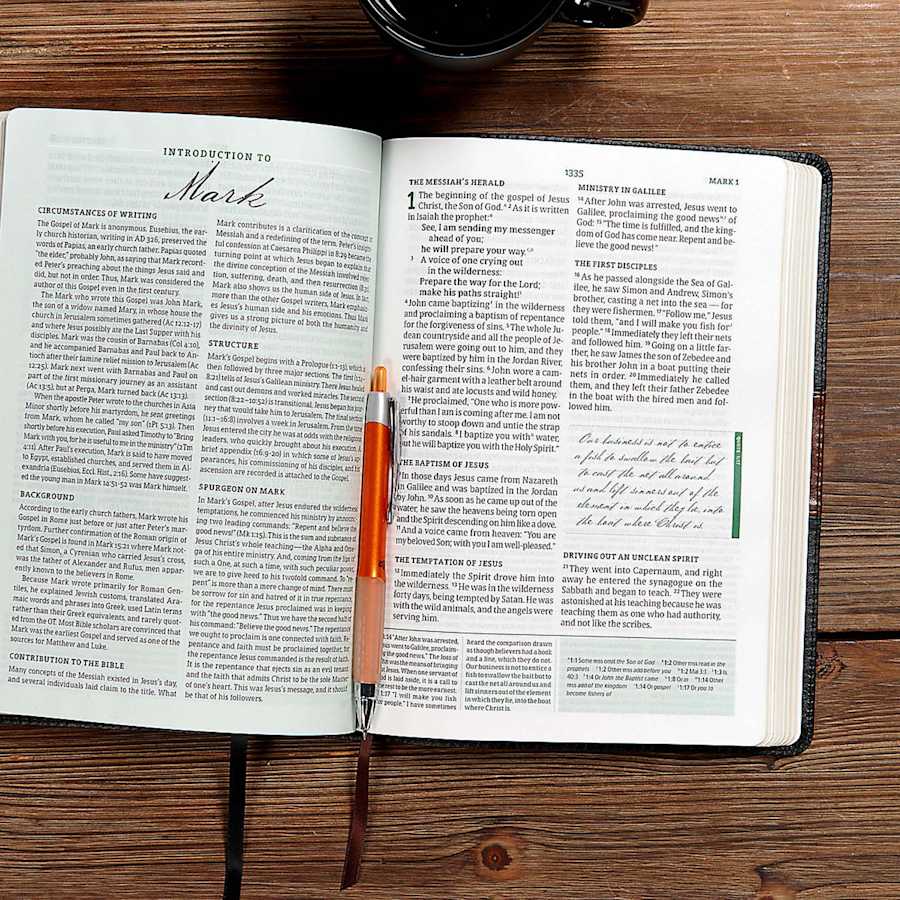 INTRODUCTION TO
Mark
CIRCUMSTANCES OF WRITING
The Gospel of Mark is anonymous. Eusebius, the ear-
ly church historian, writing in AD 326, preserved the
words of Papias, an early church father. Papias quoted
"the elder," probably John, as saying that Mark record-
ed Peter's preaching about the things Jesus said and
did, but not in order. Thus, Mark was considered the
author of this Gospel even in the first century.
The Mark who wrote this Gospel was John Mark,
the son of a widow named Mary, in whose house the
church in Jerusalem sometimes gathered (Ac 12:12-17)
and where Jesus possibly ate the Last Supper with his
disciples. Mark was the cousin of Barnabas (Col 4:10),
and he accompanied Barnabas and Paul back to An-
tioch after their famine relief mission to Jerusalem (Ac
12:25). Mark next went with Barnabas and Paul on
part of the first missionary journey as an assistant
(Ac 13:5), but at Perga, Mark turned back (Ac 13:13).
When the apostle Peter wrote to the churches in Asia
Minor shortly before his martyrdom, he sent greetings
from Mark, whom he called "my son" (1Pt 5:13). Then
shortly before his execution, Paul asked Timothy to "Bring
Mark with you, for he is useful to me in the ministry" (2Tm
4:11). After Paul's execution, Mark is said to have moved
to Egypt, established churches, and served them in Al-
exandria (Eusebius, Eccl. Hist., 2:16). Some have suggest-
ed the young man in Mark 14:51-52 was Mark himself.
BACKGROUND
According to the early church fathers, Mark wrote his
Gospel in Rome just before or just after Peter's mar-
tyrdom. Further confirmation of the Roman origin of
Mark's Gospel is found in Mark 15:21 where Mark not-
ed that Simon, a Cyrenian who carried Jesus's cross,
was the father of Alexander and Rufus, men appar-
ently known to the believers in Rome.
Because Mark wrote primarily for Roman Gen-
tiles, he explained Jewish customs, translated Ara-
maic words and phrases into Greek, used Latin terms
rather than their Greek equivalents, and rarely quot-
ed from the OT. Most Bible scholars are convinced that
Mark was the earliest Gospel and served as one of the
sources for Matthew and Luke.
CONTRIBUTION TO THE BIBLE
Many concepts of the Messiah existed in Jesus's day,
and several individuals laid claim to the title. What
Mark contributes is a clarification of the concept of
Messiah and a redefining of the term. Peter's insight-
ful confession at Caesarea Philippi in 8:29 became the
turning point at which Jesus began to explain that
the divine conception of the Messiah involved rejec-
tion, suffering, death, and then resurrection (8:31).
Mark also shows us the human side of Jesus. In fact,
more than the other Gospel writers, Mark emphasiz-
es Jesus's human side and his emotions. Thus Mark
gives us a strong picture of both the humanity and
the divinity of Jesus.
STRUCTURE
Mark's Gospel begins with a Prologue (1:1-13), which is
then followed by three major sections. The first (1:14-
8:21) tells of Jesus's Galilean ministry. There Jesus healed
and cast out demons and worked miracles. The second
section (8:22–10:52) is transitional. Jesus began his jour-
ney that would take him to Jerusalem. The final section
(11:1–16:8) involves a week in Jerusalem. From the time
Jesus entered the city he was at odds with the religious
leaders, who quickly brought about his execution. A
brief appendix (16:9-20) in which some of Jesus's ap-
pearances, his commissioning of his disciples, and his
ascension are recorded is attached to the Gospel.
SPURGEON ON MARK
In Mark's Gospel, after Jesus endured the wilderness
temptations, he commenced his ministry by announc-
ing two leading commands: "Repent and believe the
good news!" (Mk 1:15). This is the sum and substance of
Jesus Christ's whole teaching—the Alpha and Ome-
ga of his entire ministry. And, coming from the lips of
such a One, at such a time, with such peculiar power,
we are to give heed to his twofold command. To "re-
pent" is more than a mere change of mind. There must
be sorrow for sin and hatred of it in true repentance,
for the repentance Jesus proclaimed was in keeping
with the "good news." Thus we have the second half of
his command: "Believe the good news." The repentance
we ought to proclaim is one connected with faith. Re-
pentance and faith must be proclaimed together, for
the repentance Jesus commanded is the result of faith.
It is the repentance that ejects sin as an evil tenant
and the faith that admits Christ to be the sole Master
of one's heart. This was Jesus's message, and it should
be that of his followers.
1335
MARK 1
THE MESSIAH'S HERALD
1 The beginning of the gospel of Jesus
Christ, the Son of God. 2 As it is written
in Isaiah the prophet:
See, I am sending my messenger
ahead of you;
he will prepare your way.
3 A voice of one crying out
in the wilderness:
Prepare the way for the Lord;
make his paths straight!
4 John came baptizing in the wilderness
and proclaiming a baptism of repentance
for the forgiveness of sins. 5 The whole Ju-
dean countryside and all the people of Je-
rusalem were going out to him, and they
were baptized by him in the Jordan River,
confessing their sins. 6 John wore a cam-
el-hair garment with a leather belt around
his waist and ate locusts and wild honey.
7 He proclaimed, "One who is more pow-
erful than I am is coming after me. I am not
worthy to stoop down and untie the strap
of his sandals. 8 I baptize you with water,
but he will baptize you with the Holy Spirit."
THE BAPTISM OF JESUS
In those days Jesus came from Nazareth
in Galilee and was baptized in the Jordan
by John. 10 As soon as he came up out of the
water, he saw the heavens being torn open
and the Spirit descending on him like a dove.
11 And a voice came from heaven: "You are
my beloved Son; with you I am well-pleased."
THE TEMPTATION OF JESUS
12 Immediately the Spirit drove him into
the wilderness. 13 He was in the wilderness
forty days, being tempted by Satan. He was
with the wild animals, and the angels were
serving him.
MINISTRY IN GALILEE
14 After John was arrested, Jesus went to
Galilee, proclaiming the good news of
God: 15 "The time is fulfilled, and the king-
dom of God has come near. Repent and be-
lieve the good news!"
THE FIRST DISCIPLES
16 As he passed alongside the Sea of Gal-
ilee, he saw Simon and Andrew, Simon's
brother, casting a net into the sea — for
they were fishermen. 17 "Follow me," Jesus
told them, "and I will make you fish for
people." 18 Immediately they left their nets
and followed him. 19 Going on a little far-
ther, he saw James the son of Zebedee and
his brother John in a boat putting their
nets in order. 20 Immediately he called
them, and they left their father Zebedee
in the boat with the hired men and fol-
lowed him.
Our business is not to entice
a fish to swallow the bait but
to cast the net all around
us and lift sinners out of the
element in which they lie, into
the boat where Christ is.
QUOTE
DRIVING OUT AN UNCLEAN SPIRIT
21 They went into Capernaum, and right
away he entered the synagogue on the
Sabbath and began to teach. 22 They were
astonished at his teaching because he was
teaching them as one who had authority,
and not like the scribes.
1:14 "After John was arrested,
Jesus went to Galilee, proclaim-
the good news." The loss of
John was the means of bringing
Jesus. When one servant of
is laid aside, it is a call to
rest to be the more earnest.
1:17 "I will make you fish
for people." I have sometimes
heard the comparison drawn
as though believers had a hook
and a line, which they do not.
Our business is not to entice a
fish to swallow the bait but to
cast the net all around us and
lift sinners out of the element
in which they lie, into the boat
where Christ is.
1:1 Some mss omit the Son of God 1:2 Other mss read in the
prophets 1:2 Other mss add before you 1:2 Mal 3:1 1:3 Is
40:3 1:4 Or John the Baptist came 1:8 Or in 1:14 Other
mss add of the kingdom 1:14 Or gospel 1:17 Or you to
become fishers of